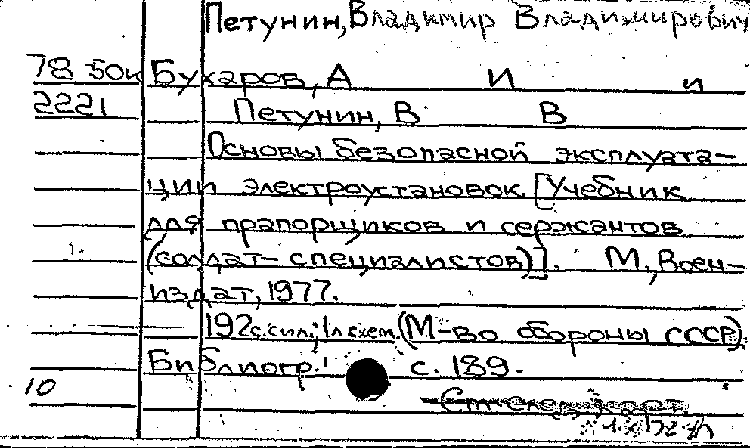 Петунин, Владимир Владимирович
78-50к Бухаров, А И и
2221 Петунин, В В
Основы безопасной эксплуата-
ции электроустановок [Учебник
для прапорщиков и сержантов
(солдат - специалистов)]. М., Воен-
издат, 1977.
192 с. с ил.; 1 л. схем. (М-во обороны СССР).
Библиогр.: с. 189.
10